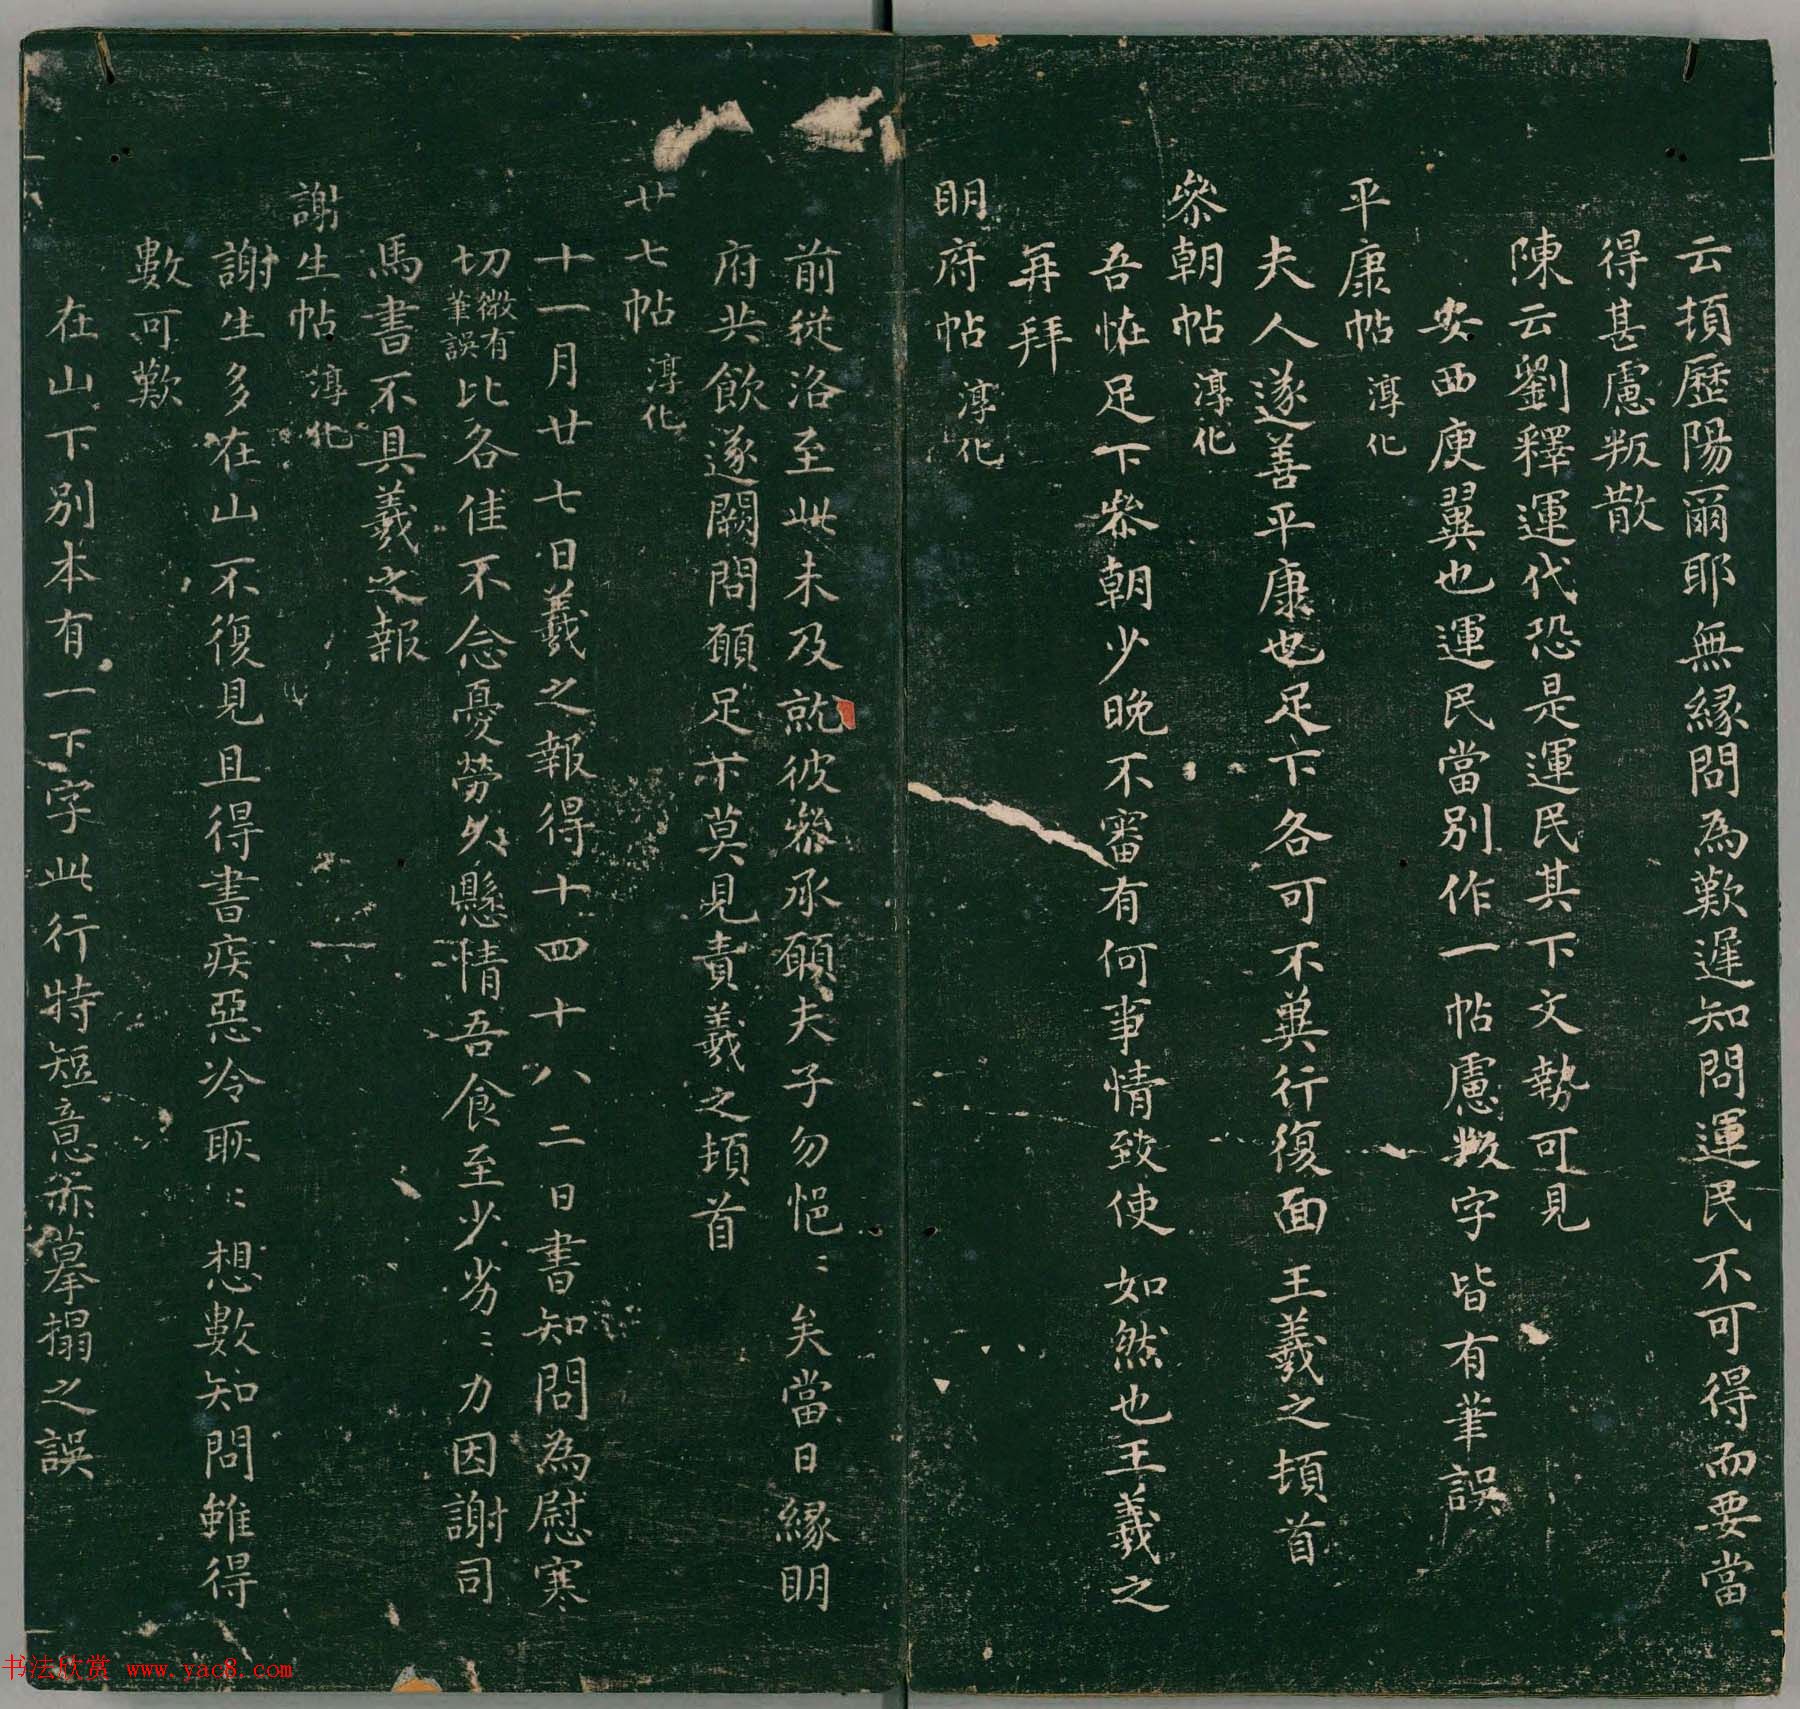 云頓歷陽爾耶無緣問為歎遲知問運民不可得而要當
得甚慮叛散
陳云劉釋運代恐是運民其下文勢可見
安西庾翼也運民當別作一帖慮叛字皆有筆誤
平康帖 淳化
夫人遂善平康也足下各可不冀行復面王羲之頓首
叅朝帖 淳化
吾怪足下叅朝少晚不審有何事情致使如然也王羲之
再拜
明府帖 淳化
前從洛至此未及就彼叅承願夫子勿悒〻矣當日緣明
府共飲遂闕問願足下莫見責羲之頓首
廿七帖 淳化
十一月廿七日羲之報得十四十八二日書知問為慰寒
切微有筆誤比各佳不念憂勞久懸情吾食至少劣〻力因謝司
馬書不具羲之報
謝生帖 淳化
謝生多在山不復見且得書疾惡冷耿〻想數知問雖得
數可歎
在山下別本有一下字此行特短意亦摹搨之誤
书法欣赏 www.yac8.com